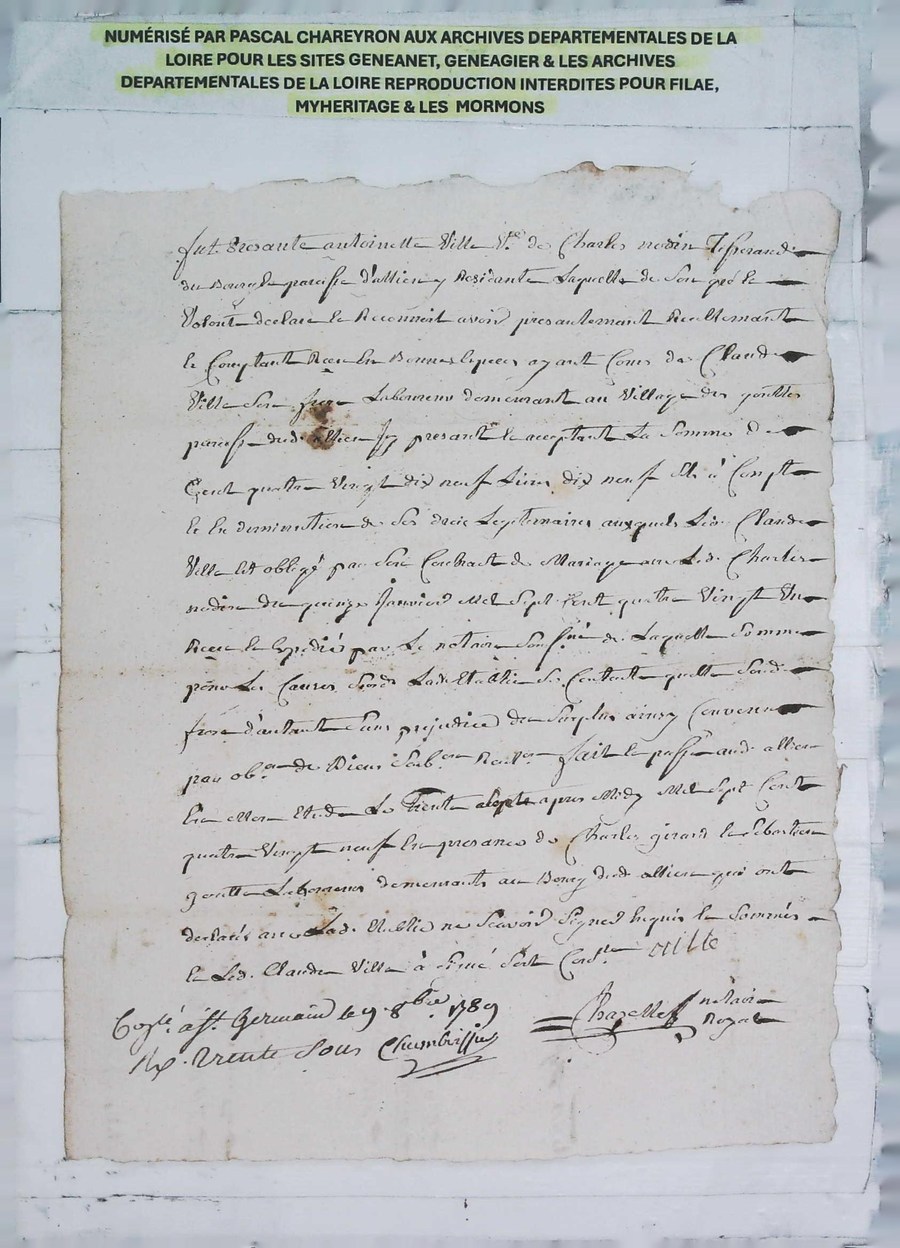 NUMÉRISÉ PAR PASCAL CHAREYRON AUX ARCHIVES DEPARTEMENTALES DE LA
LOIRE POUR LES SITES GENEANET, GENEAGIER & LES ARCHIVES
DEPARTEMENTALES DE LA LOIRE REPRODUCTION INTERDITES POUR FILAE,
MYHERITAGE & LES MORMONS
fut presante antoinette Ville Vve de Charles nodin
du Bourg paroisse d'allieu y Residante Laquelle de son gré et
Volonté declare et Reconnoit avoir presantemant Reellemant
et Comptant Receu En Bonnes Especes ayant Cours de Claude
Ville son frere Laboureur demeurant au Village des
paroisse dud. allieu Jcy presant et acceptant La Somme de
Cent quatre Vingt dix neuf Livres dix neuf sls à Compte
et En diminution de ses droit Legitimaires auxquels Led. Claude
Ville Est obligé par son Contract de Mariage avec Led. Charles
nodin du quinze Janvier Mil Sept Cent quatre Vingt Un
Receu et Expedié par Le notaire Soussigné de Laquelle Somme
pour Les Causes Susd. Lad. Etablie se Contente quitte Sond.
frere d'autant Sans prejudice du Surplus ainsy Convenu
par obon de Biens fait et passé aud. allieu
En mon Etude Le trente aprés Midy Mil Sept Cent
quatre Vingt neuf En presance de Charles girard et Sebastien
Laboureurs demeurants au Bourg dud. allieu qui ont
declarés avec Lad. Etablie ne Scavoir Signer Enquis et Sommés
et Led. Claude Ville à signé
ville
Conté. à st. Germain le 9 8bre 1789
Rx. trente sous
Chazelles notaire
Royal